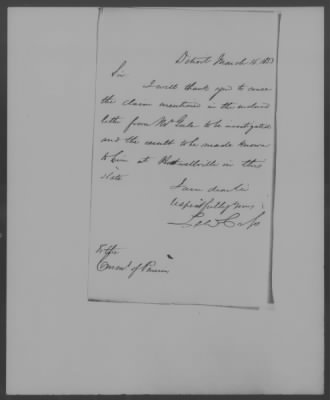 Detroit March 16. 1853
Sir
I will thank you to cause
the claim mentioned in the enclosed
letter from Mr Gale to be investigated
and the result to be made known
to him at in this
State
I am dear Sir
respectfully yours
Lew Cass
To the
Commr of Pensions